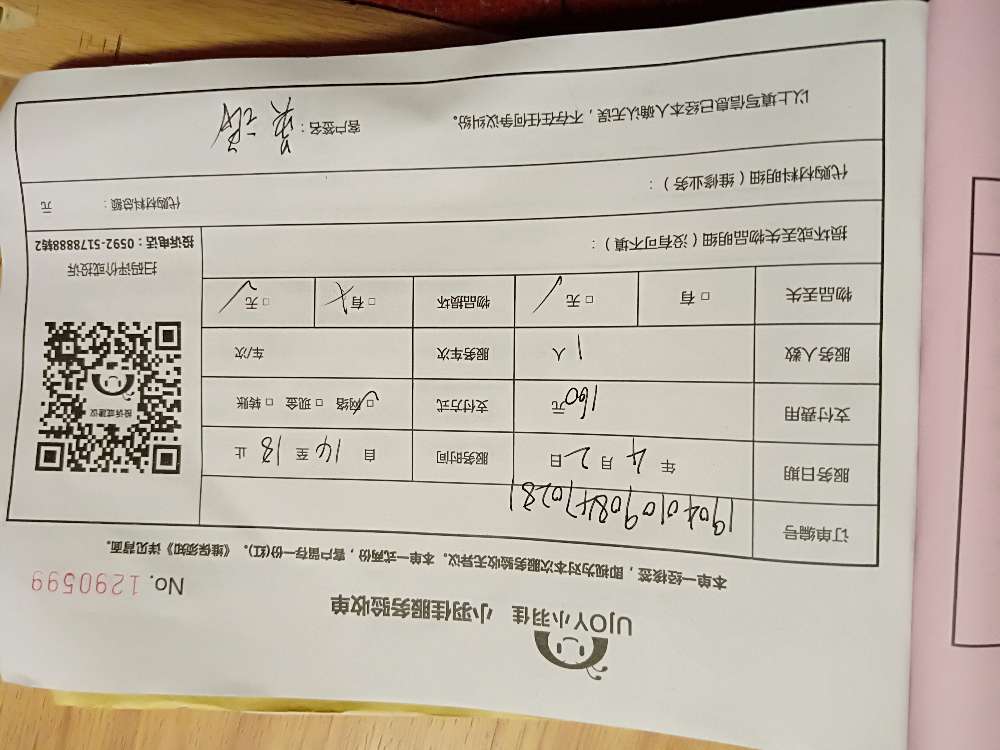 UJOY小羽佳 小羽佳服务验收单
No. 1290599
本单一经核签，即视为对本次服务验收无异议。本单一式两份，客户留存一份(红)。《维保须知》详见背面。
订单编号 1904010908470281
服务日期 年 4 月 2 日 服务时间 自 14 至 18 止
支付费用 160 元 支付方式 □ 网络 □ 现金 □ 转账
服务人数 1 人 服务车次 车/次
物品丢失 □ 有 □ 无 物品损坏 □ 有 □ 无
投诉或建议
扫码评价或投诉
投诉电话：0592-5178888转2
损坏或丢失物品明细（没有可不填）：
代购材料明细（维修业务）：
代购材料总额： 元
以上填写信息已经本人确认无误，不存在任何争议纠纷。
客户签名：